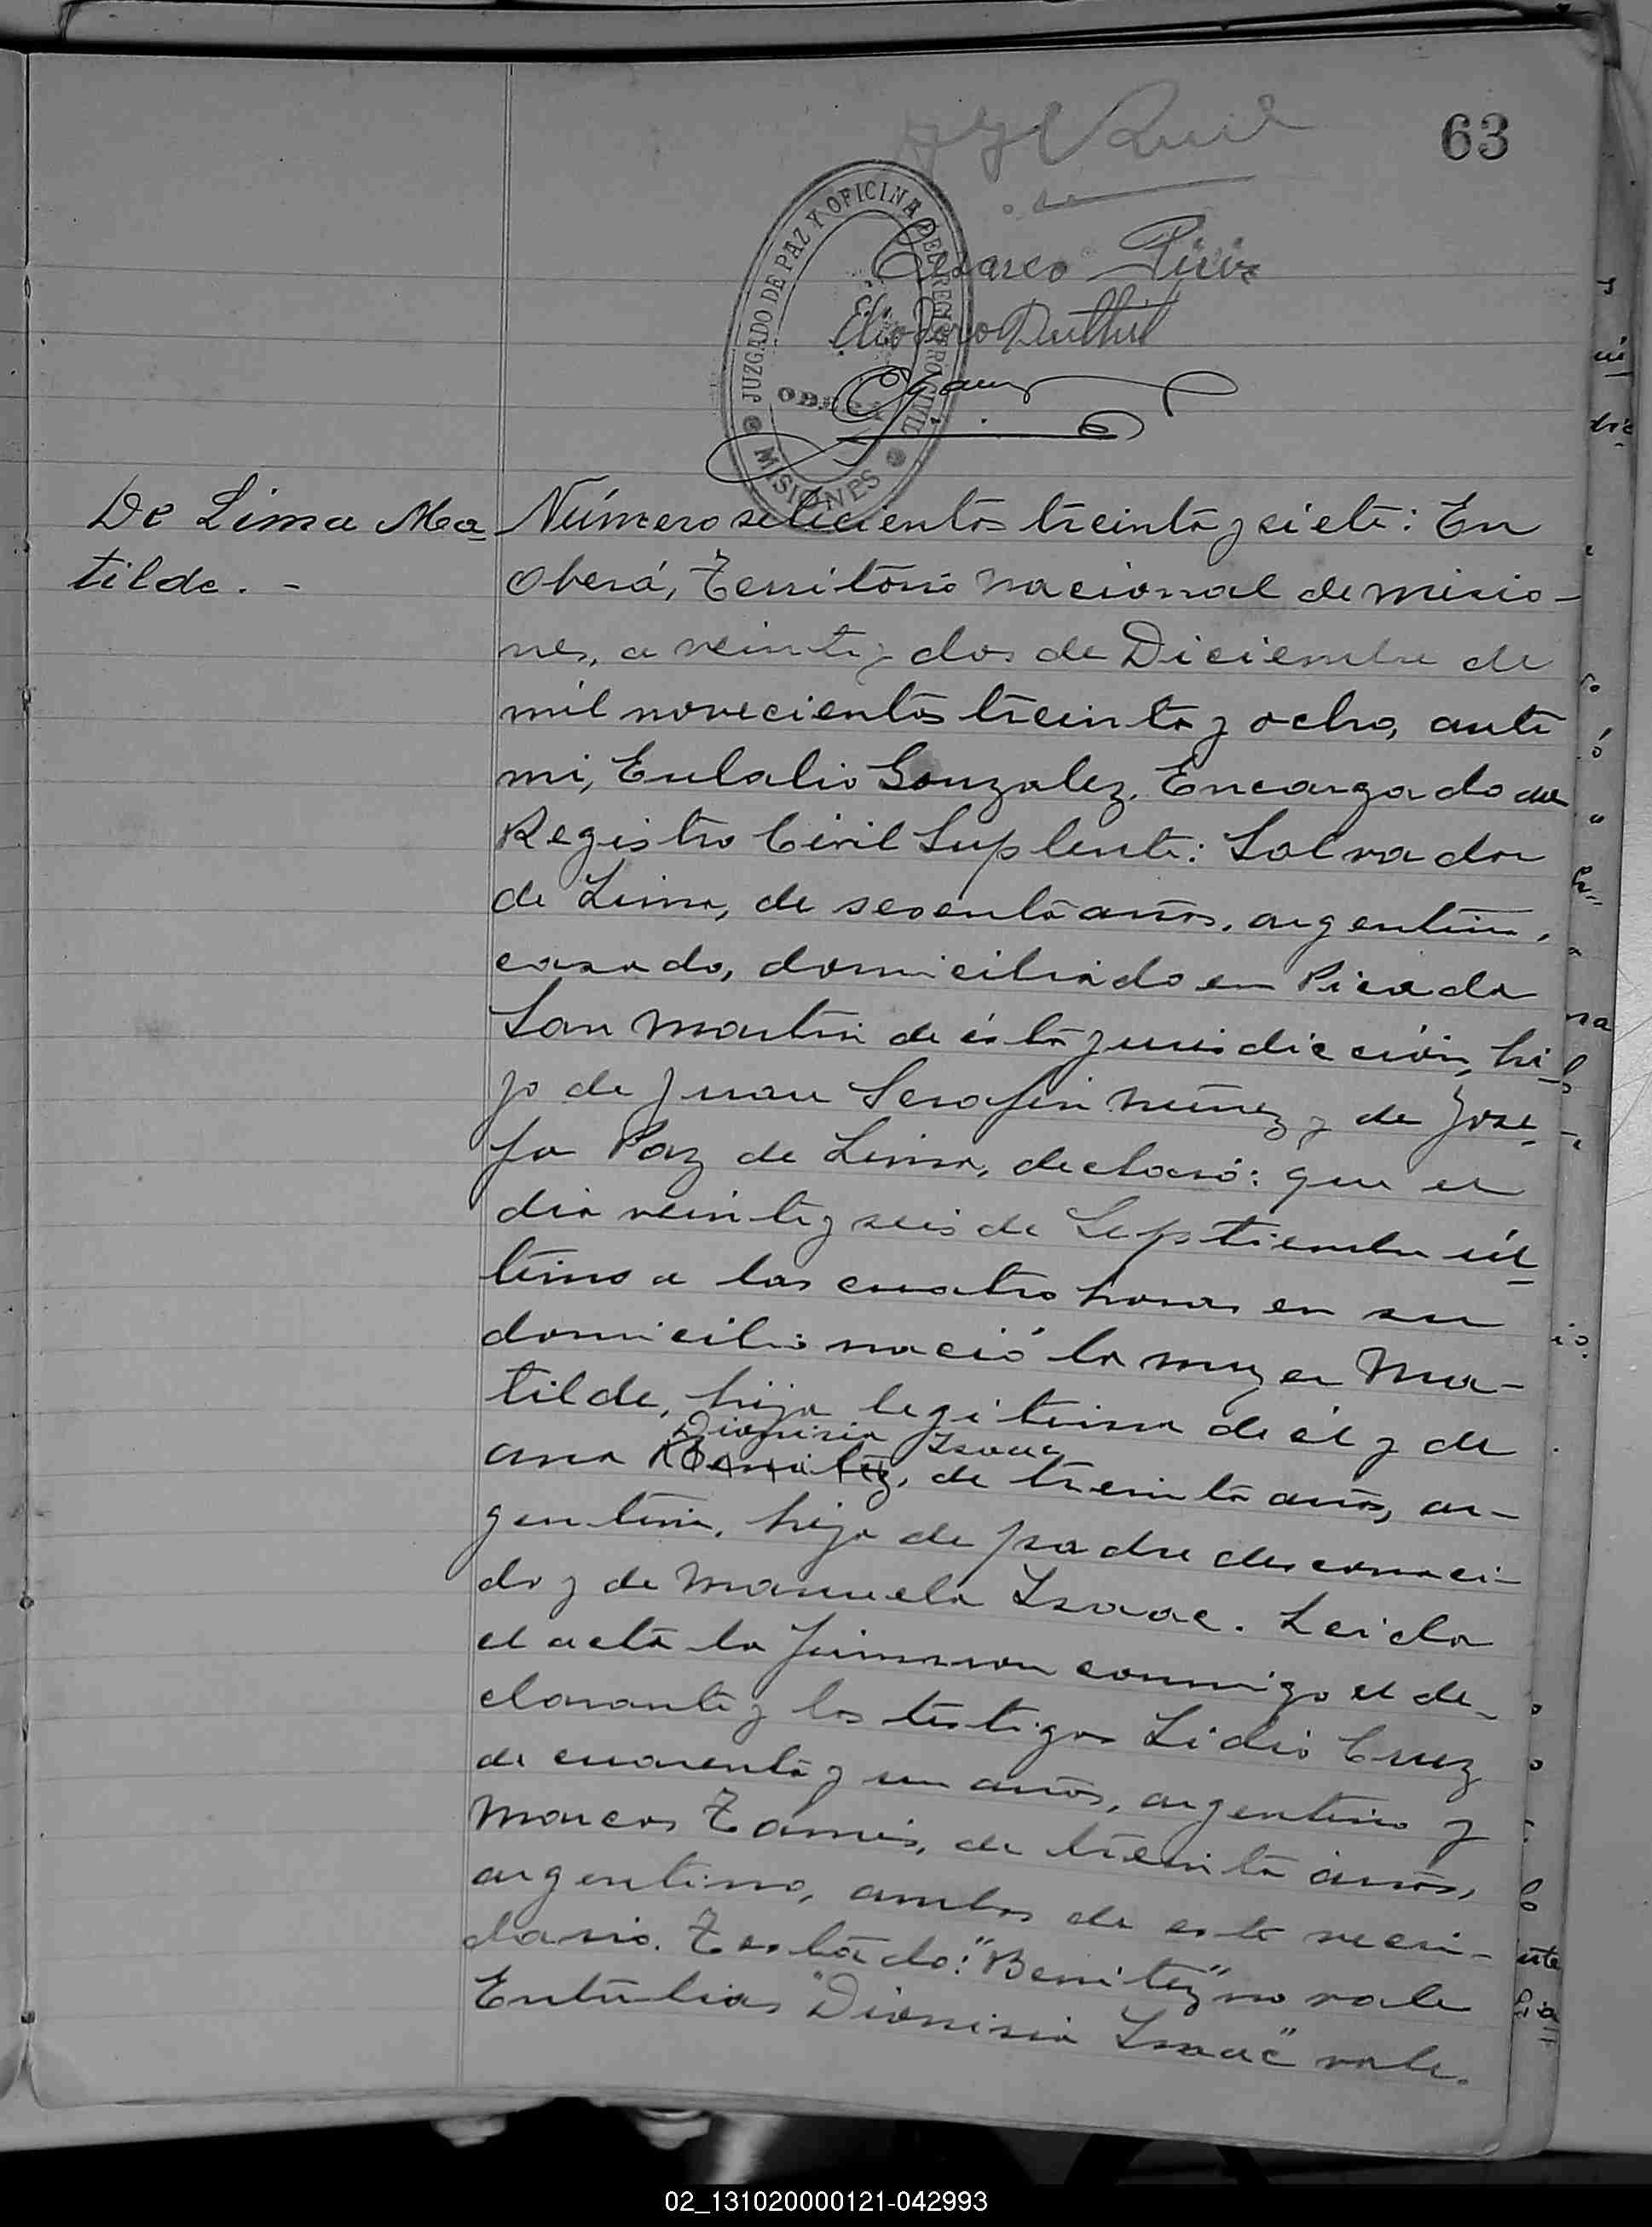 63
JUZGADO DE PAZ Y OFICINA DEL REGISTRO CIVIL
OBERÁ
MISIONES
De Lima Ma
tilde. -
Número setecientos treinta y siete: En
Oberá, Territorio Nacional de Misio-
nes, a veinte y dos de Diciembre de
mil novecientos treinta y ocho, ante
mi, Eulalio Gonzalez, Encargado del
Registro Civil Suplente: Salvador
de Lima, de sesenta años, argentino,
casado, domiciliado en Picada
San Martin de ésta jurisdicción, hi-
jo de Juan Serafin Nuñez y de Jose-
fa Paz de Lima, declaró: que el
dia veinte y seis de Septiembre úl-
timo a las cuatro horas en su
domicilio nació la mujer Ma-
tilde, hija legitima de él y de
Dionisia Isaac
ana Benitez, de treinta años, ar-
gentina, hija de padre desconoci-
do y de Manuela Isaac. Leida
el acta la firmaron conmigo el de-
clarante y los testigos Lidio Cruz
de cuarenta y un años, argentino y
Marcos de treinta años,
argentino, ambos de este vecin-
dario. Testado: "Benitez" no vale
Entrelias "Dionisia Isaac" vale.
02_131020000121-042993